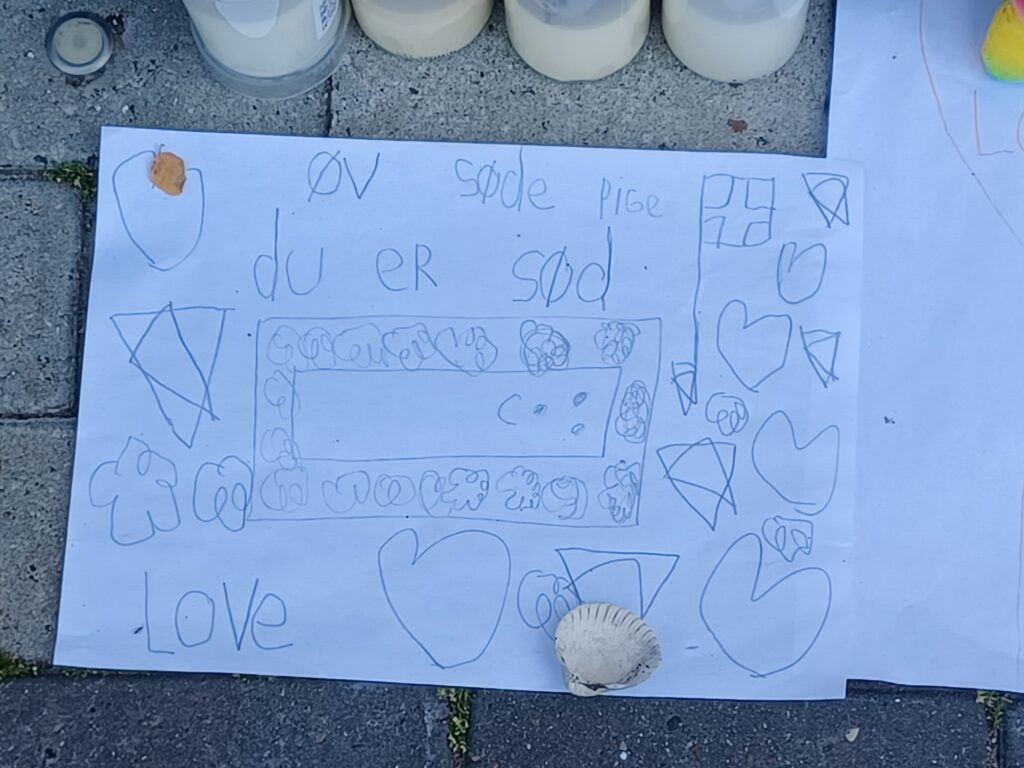 ØV SØde PIGe
dU eR SØd
LOVe
LO